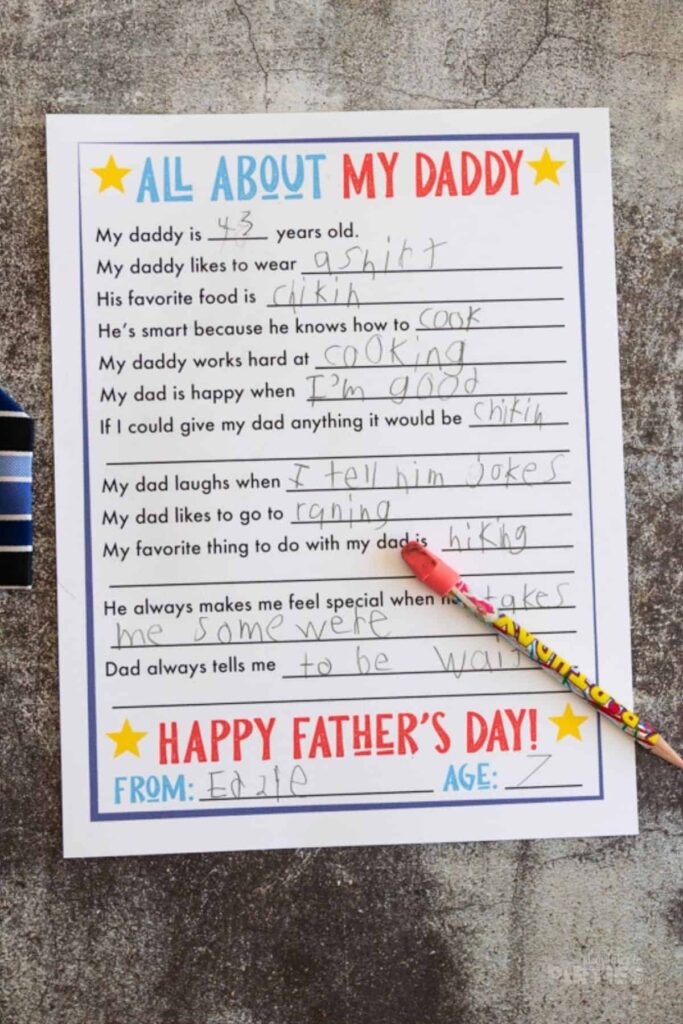 ALL ABOUT MY DADDY
My daddy is 43 years old.
My daddy likes to wear ashirt
His favorite food is chikin
He's smart because he knows how to cook
My daddy works hard at cooking
My dad is happy when I'm good
If I could give my dad anything it would be chikin
My dad laughs when I tell him jokes
My dad likes to go to raning
My favorite thing to do with my dad is hiking
He always makes me feel special when takes
me somewere
Dad always tells me to be
HAPPY FATHER'S DAY!
FROM: AGE: 7
PARTIES